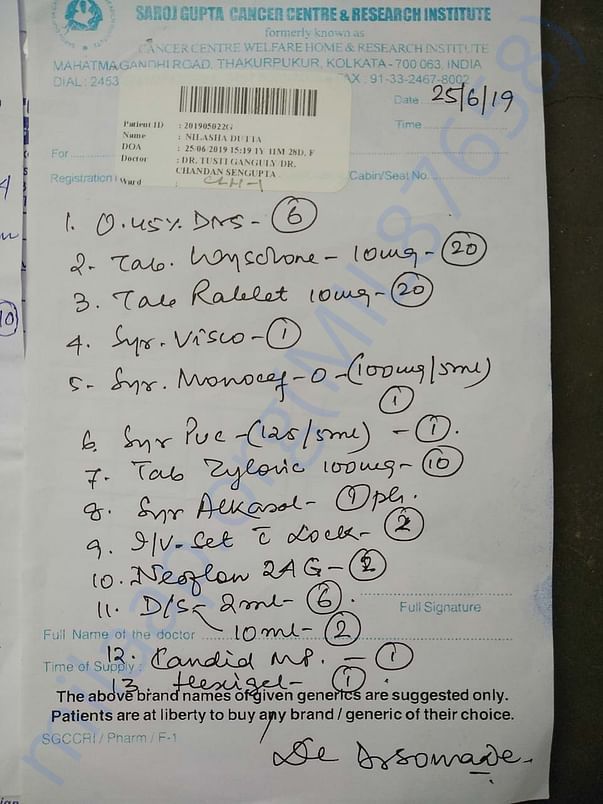 SAROJ GUPTA CANCER CENTRE & RESEARCH INSTITUTE
formerly known as
CANCER CENTRE WELFARE HOME & RESEARCH INSTITUTE
MAHATMA GANDHI ROAD, THAKURPUKUR, KOLKATA - 700 063, INDIA
DIAL : 2453 FAX : 91-33-2467-8002
Date 25/6/19
Patient ID : 201905022G
Name : NILASHA DUTTA
Time
DOA : 25/06/2019 15:19 1Y 11M 28D, F
For Doctor : DR. TUSTI GANGULY DR.
CHANDAN SENGUPTA
Registration Ward : Cabin/Seat No.
1. 0.45% DNS - 6
2. Tab. Wysolone - 10mg - 20
3. Tab Rablet 10mg - 20
4. Syr. Visco - 1
5. Syr. Monocef - O - (100mg/5ml)
1
6. Syr Puc - (125/5ml) - 1.
7. Tab Zyloric 100mg - 10
8. Syr Alkasol - 1 ph.
9. I/V - Set c̄ Lock - 2
10. Neoflon 24G - 2
11. D/S - 2ml - 6
Full Signature
Full Name of the doctor 10ml - 2
Time of Supply : 12. Candid MP. - 1
13. Hexigel - 1.
The above brand names of given generics are suggested only.
Patients are at liberty to buy any brand / generic of their choice.
SGCCRI / Pharm / F-1
milaap.org(MIL 87658)